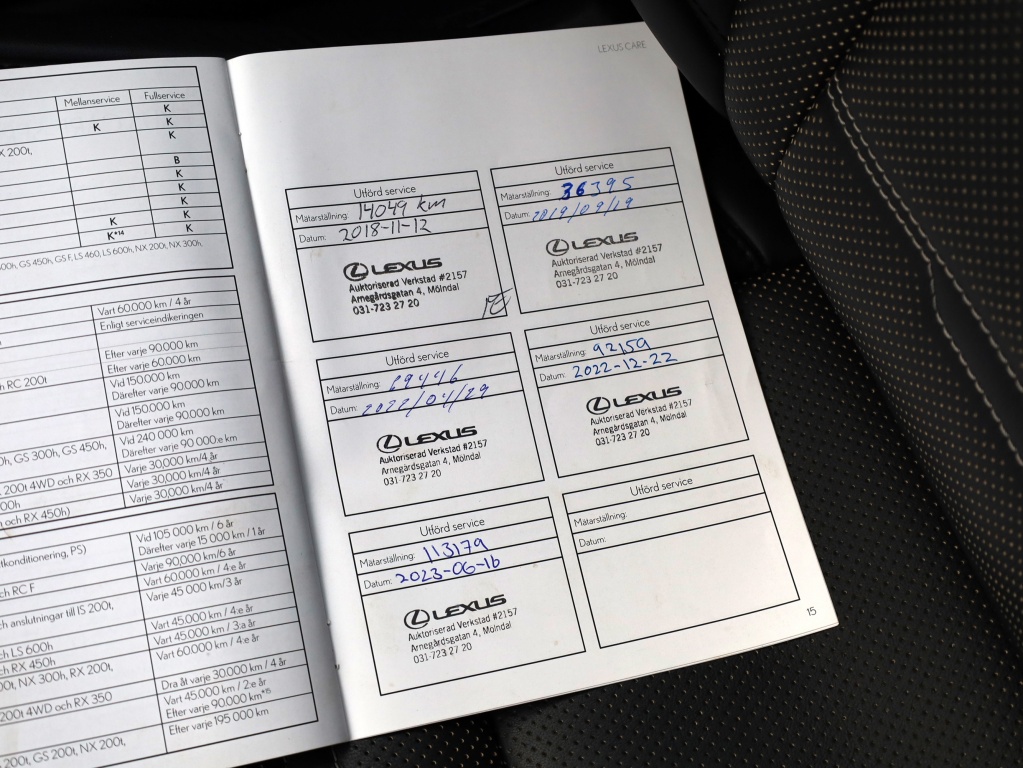 Mellanservice Fullservice
K
K K
X 200t, K
B
K
K
K
K K
K*14 K
00h, GS 450h, GS F, LS 460, LS 600h, NX 200t, NX 300h,
Vart 60.000 km / 4 år
Enligt serviceindikeringen
Efter varje 90.000 km
Efter varje 60.000 km
h RC 200t Vid 150.000 km
Därefter varje 90.000 km
Vid 150.000 km
Därefter varje 90.000 km
0h, GS 300h, GS 450h, Vid 240 000 km
Därefter varje 90 000.e km
200t 4WD och RX 350 Varje 30,000 km/4 år
00h Varje 30,000 km/4 år
och RX 450h) Varje 30,000 km/4 år
tkonditionering, PS) Vid 105 000 km / 6 år
Därefter varje 15 000 km / 1 år
Varje 90,000 km/6 år
ch RC F Vart 60.000 km / 4:e år
Varje 45 000 km/3 år
ch anslutningar till IS 200t,
Vart 45.000 km / 4:e år
ch LS 600h Vart 45.000 km / 3:a år
ch RX 450h Vart 60.000 km / 4:e år
00t, NX 300h, RX 200t,
Dra åt varje 30.000 km / 4 år
200t 4WD och RX 350 Vart 45.000 km / 2:e år
Efter varje 90.000 km*15
, GS 200t, NX 200t, Efter varje 195 000 km
LEXUS CARE
Utförd service
Mätarställning: 14049 km
Datum: 2018-11-12
LEXUS
Auktoriserad Verkstad #2157
Arnegårdsgatan 4, Mölndal
031-723 27 20
Utförd service
Mätarställning: 36395
Datum: 2019/09/19
LEXUS
Auktoriserad Verkstad #2157
Arnegårdsgatan 4, Mölndal
031-723 27 20
Utförd service
Mätarställning: 69446
Datum: 2022/04/29
LEXUS
Auktoriserad Verkstad #2157
Arnegårdsgatan 4, Mölndal
031-723 27 20
Utförd service
Mätarställning: 92159
Datum: 2022-12-22
LEXUS
Auktoriserad Verkstad #2157
Arnegårdsgatan 4, Mölndal
031-723 27 20
Utförd service
Mätarställning: 113179
Datum: 2023-06-16
LEXUS
Auktoriserad Verkstad #2157
Arnegårdsgatan 4, Mölndal
031-723 27 20
Utförd service
Mätarställning:
Datum:
15